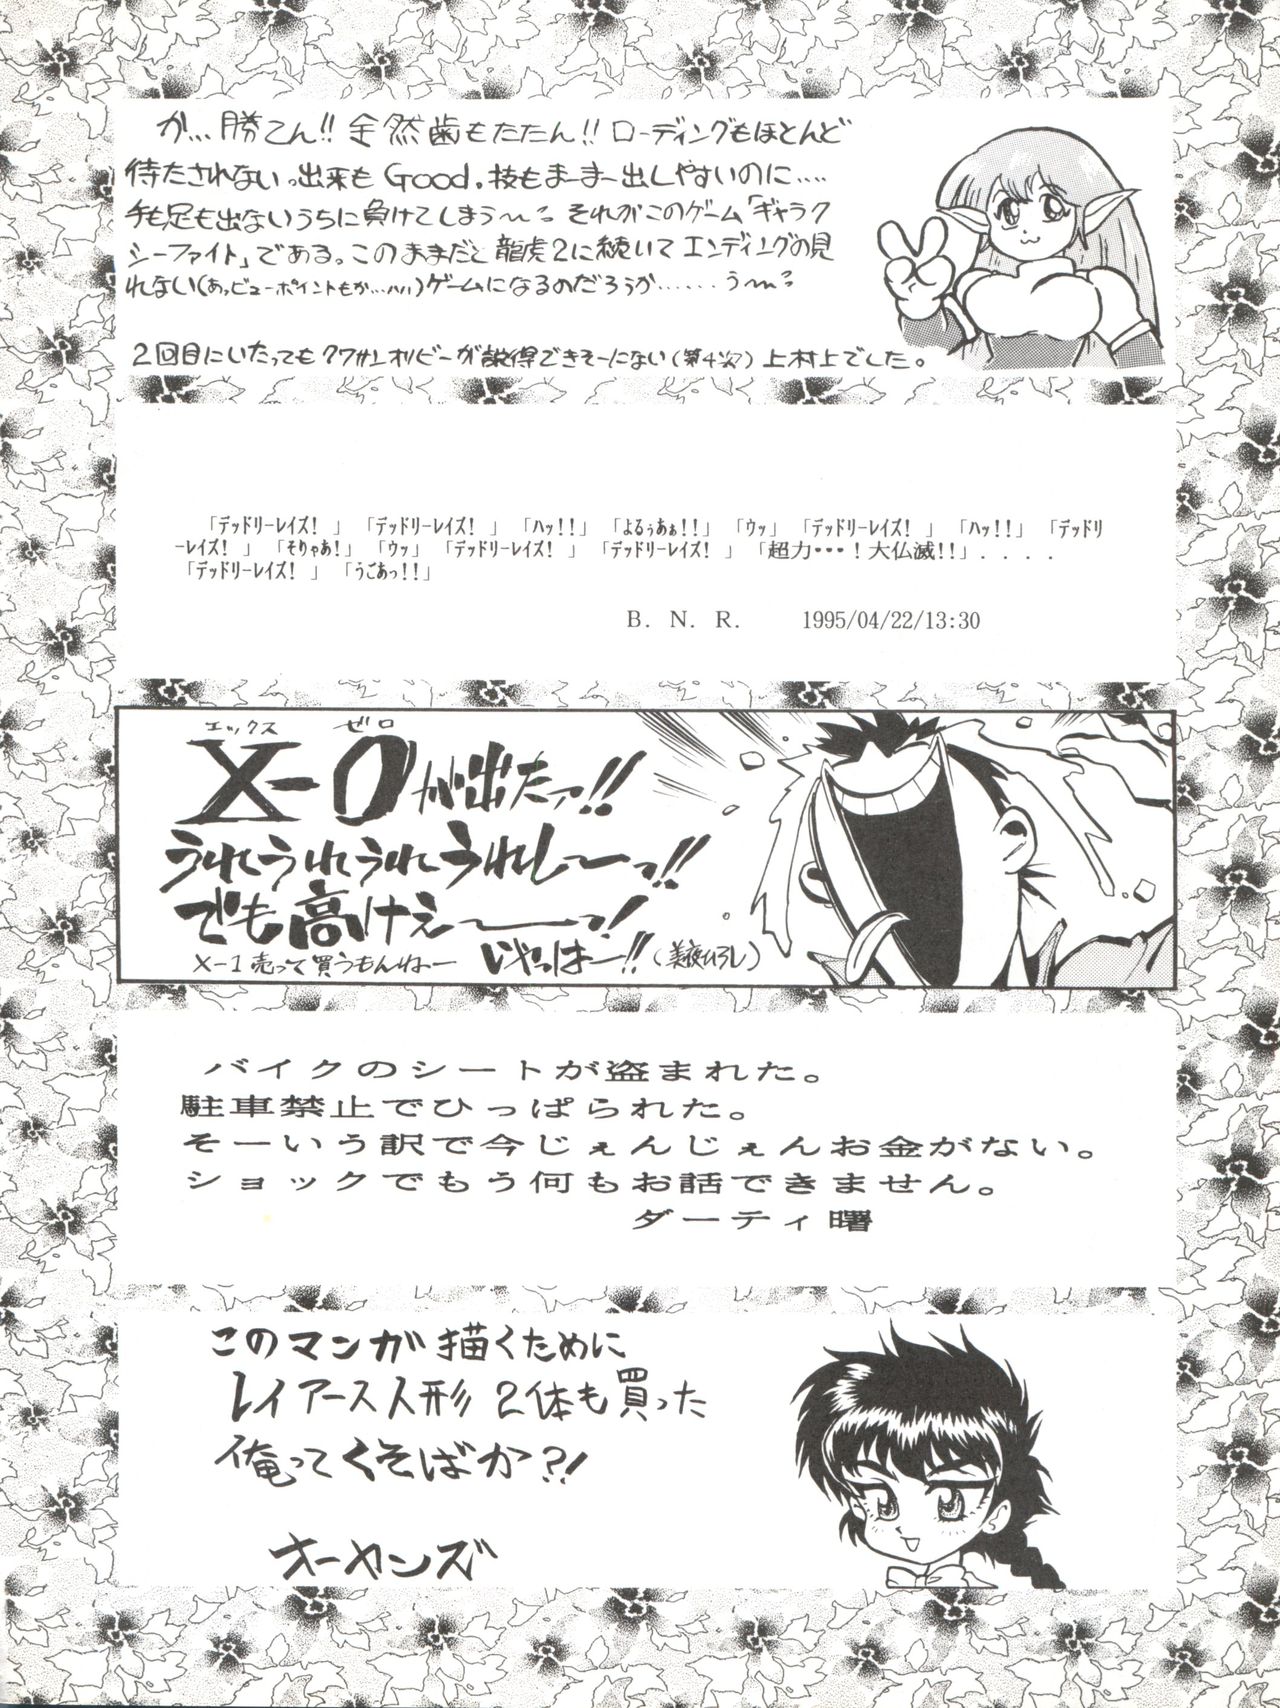 が…勝てん!! 全然歯もたたん!! ローディングもほとんど
待たされないっ出来もGood.技もまーまー出しやすいのに‥‥
手も足も出ないうちに負けてしまう〜。それがこのゲーム「ギャラク
シーファイト」である。このままだと龍虎2に続いてエンディングの見
れない(あっビューポイントもか…ハハ)ゲームになるのだろうか……う〜。
2回目にいたってもクワサンオリビーが説得できそーにない(第4次)上村上でした。
「デッドリーレイズ! 」「デッドリーレイズ! 」「ハッ!!」「よるぅあぁ!!」「ウッ」「デッドリーレイズ! 」「ハッ!!」「デッドリ
ーレイズ! 」「そりゃあ!」「ウッ」「デッドリーレイズ! 」「デッドリーレイズ! 」「超力・・・!大仏滅!!」....
「デッドリーレイズ! 」「うごあっ!!」
B. N. R. 1995/04/22/13:30
エックス ゼロ
X-0が出たァ!!
うれうれうれうれし〜っ!!
でも高けぇ〜っ!
X-1売って買うもんねー いやっはー!!(美夜ひろし)
バイクのシートが盗まれた。
駐車禁止でひっぱられた。
そーいう訳で今じぇんじぇんお金がない。
ショックでもう何もお話できません。
ダーティ曙
このマンガ描くために
レイアース人形2体も買った
俺ってくそばか?!
オーメンズ